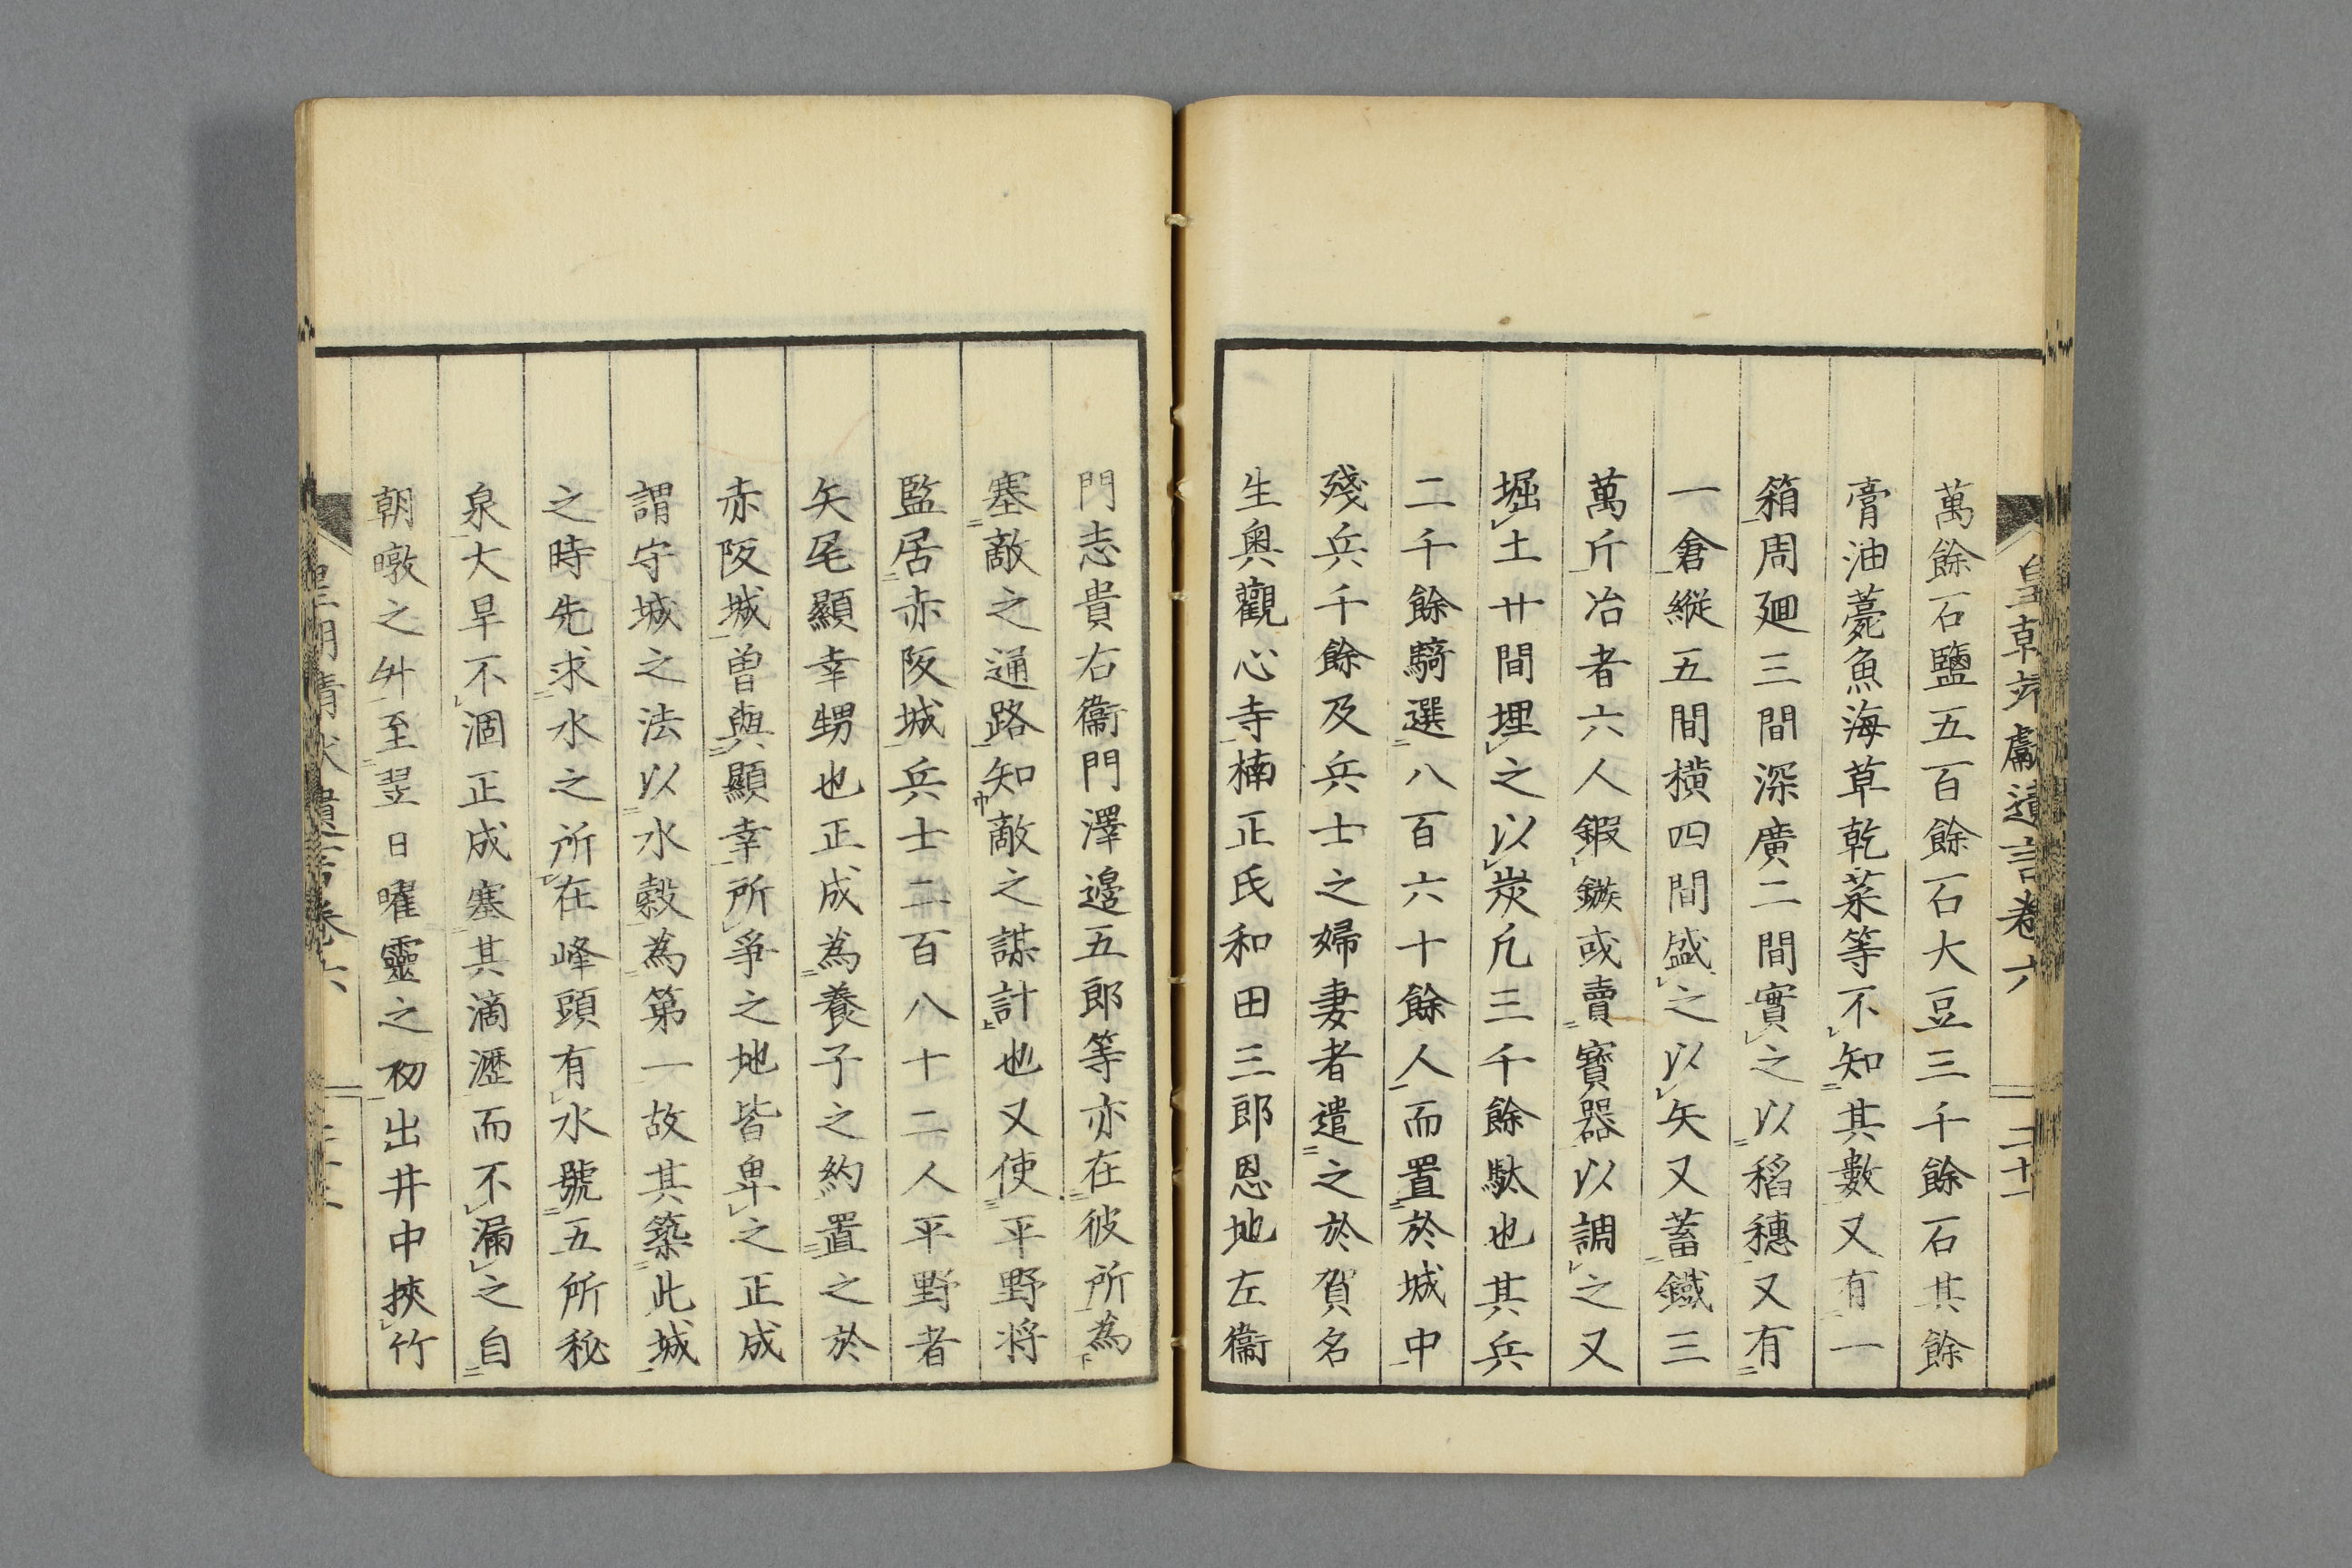 萬餘石鹽五百餘石大豆三千餘石其餘
膏油薧魚海草乾菜等不知其數又有一
箱周廻三間深廣二間實之以稻穗又有
一倉縱五間橫四間盛之以矢又蓄鐵三
萬斤冶者六人鍜鏃或賣寶器以調之又
堀土廿間埋之以炭凢三千餘駄也其兵
二千餘騎選八百六十餘人而置於城中
殘兵千餘及兵士之婦妻者遣之於賀名
生奧觀心寺楠正氏和田三郎恩地左衞
門志貴右衞門澤邉五郎等亦在彼所為
塞敵之通路知敵之謀計也又使平野将
監居赤阪城兵士二百八十二人平野者
矢尾顯幸甥也正成為養子之約置之於
赤阪城曽與顯幸所爭之地皆卑之正成
謂守城之法以水穀為第一故其築此城
之時先求水之所在峰頭有水號五所秘
泉大旱不涸正成塞其滴瀝而不漏之自
朝暾之舛至翌日曜靈之初出井中挾竹
卷六
二十一